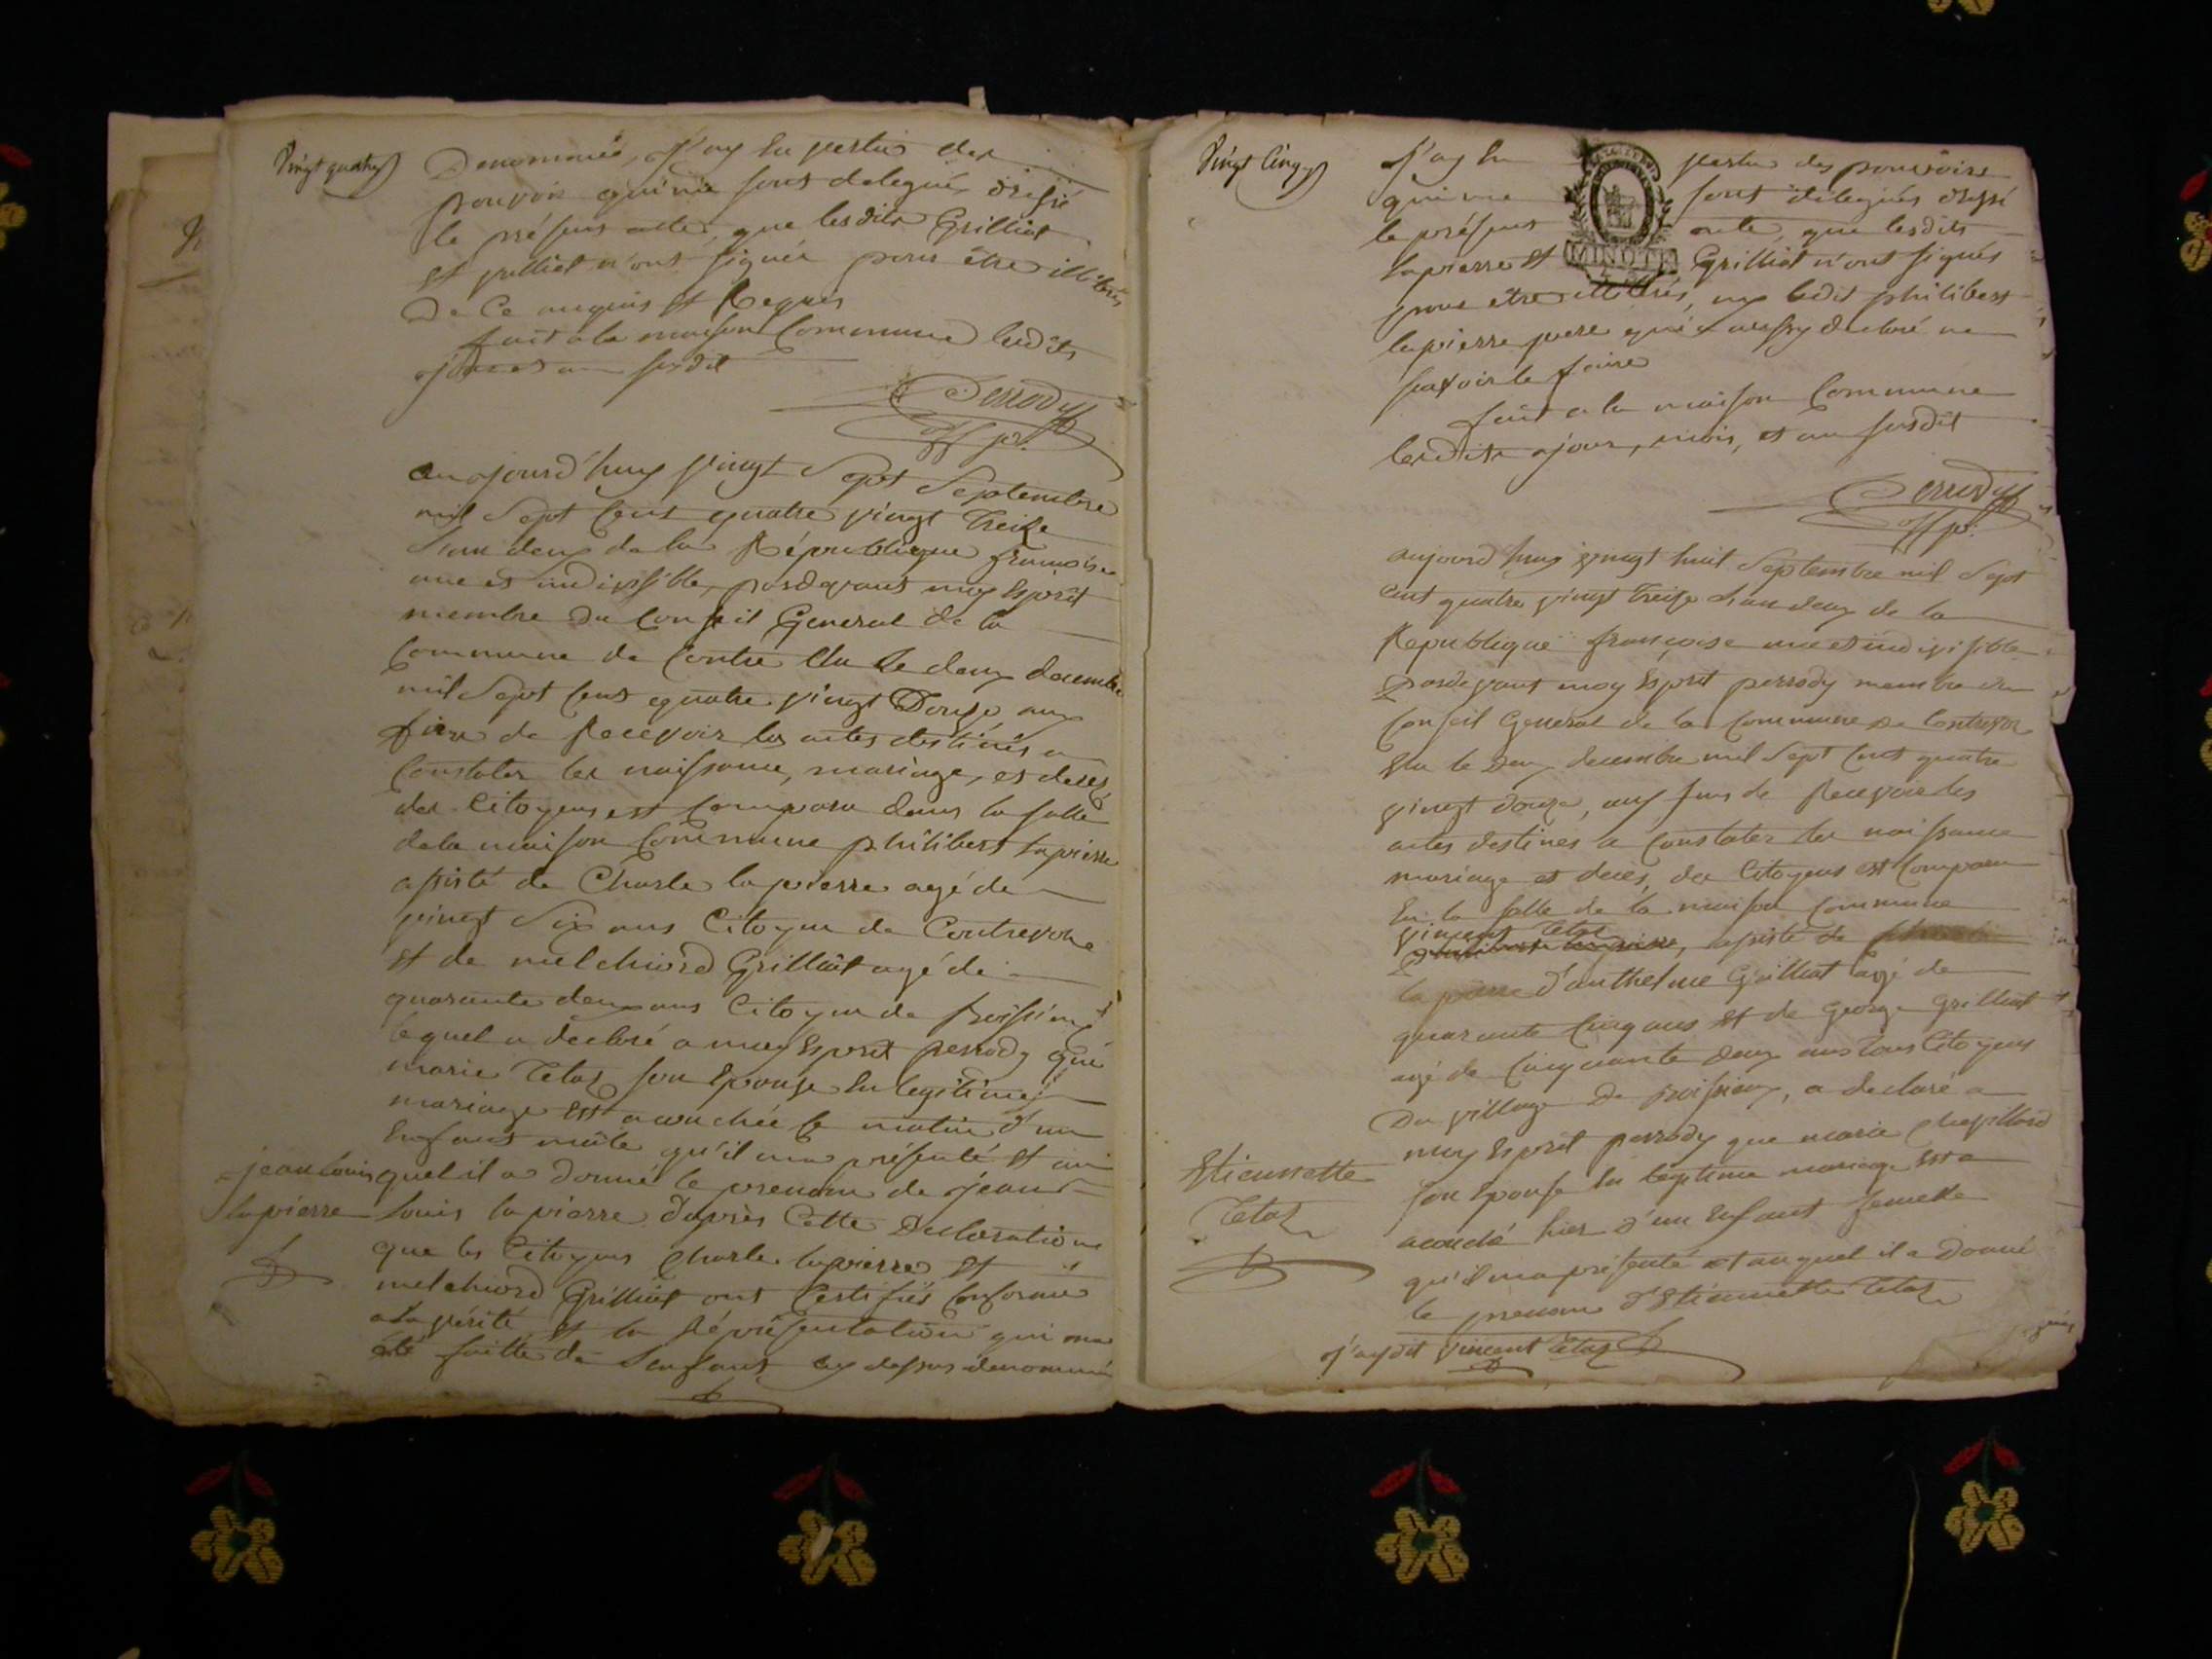 Vingt quatre
Denommée, j'ay En vertu des
pouvoir qui me sont delegués dressé
le présent acte, que lesdits Grilliet
et julliet n'ont signés pour être illiterés
De Ce enquis et Requis
fait a la maison Commune lesdits
jour et an susdit
Perrody
off p.
aujourd'huy vingt Sept Septembre
mil Sept Cent quatre vingt Treize
L'an deux de la République françoise
une et indivisible, pardevant moy Esprit
membre du Conseil General de la
Commune de Contre Elu le deux decembre
mil Sept Cent quatre vingt Douze aux
fins de Recevoir les actes destinés a
Constater les naissance, mariage, et decés
des Citoyens est Comparu dans la salle
de la maison Commune philibert lapierre
assisté de Charle lapierre agé de
vingt Six ans Citoyen de Contrevoz
et de melchiord Grilliet agé de
quarante deux ans Citoyen de poissieux
lequel a declaré a moy Esprit perrody que
marie Tetaz son Epouse En legitime
mariage Est acouchée ce matin d'un
Enfant mâle qu'il m'a présenté et au
quel il a donné le prenom de jean
Louis lapierre d'après Cette Declaration
que les Citoyens Charle lapierre et
melchiord Grilliet ont Certifiés Conforme
a la vérité et la Réprésentation qui m'a
été faitte de L'enfant cy dessus denommé
= jean Louis
lapierre
Vingt Cinq
j'ay En vertu des pouvoirs
qui me sont delegués dressé
le présent acte, que lesdits
Lapierre et Grilliet n'ont signés
pour être illiterés, ny ledit philibert
lapierre pere qui a aussy declaré ne
savoir le faire
fait a la maison Commune
lesdits jour, mois, et an susdit
MINUTE
Perrody
off p.
aujourd'huy vingt huit Septembre mil Sept
Cent quatre vingt Treize L'an deux de la
Republique françoise une et indivisible
Pardevant moy Esprit perrody membre du
Conseil General de la Commune de Contrevoz
Elu le Deux decembre mil Sept Cent quatre
vingt Douze, aux fins de Recevoir les
actes destines a Constater les naissance
mariage et decés, des Citoyens est Comparu
En la salle de la maison Commune
vincent Tetaz
philibert lapierre, assisté de
la pierre d'anthelme Grilliet agé de
quarante Cinq ans et de George Grilliet
agé de Cinquante deux ans tous Citoyens
Du village De poissieux, a declaré a
moy Esprit perrody que marie chapillard
son Epouse En legitime mariage Est a
acouché hier d'un Enfant femelle
qu'il m'a présenté et auquel il a Donné
le prenom d'Etiennette Tetaz
j'ay dit vincent Tetaz
Etiennette
Tetaz